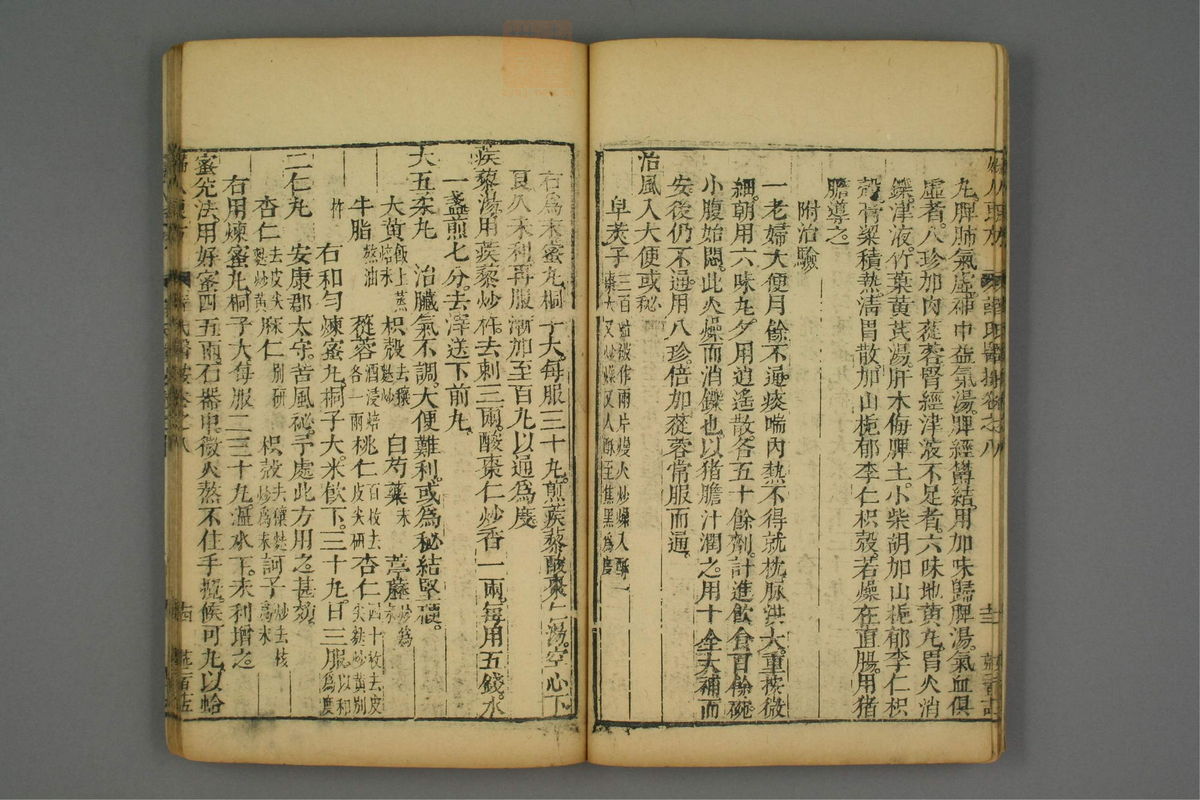 丸脾肺氣虛補中益氣湯脾經鬱結用加味歸脾湯氣血俱
虛者八珍加肉蓯蓉腎經津液不足者六味地黃丸胃火消
鑠津液竹葉黃芪湯肝木侮脾土小柴胡加山梔郁李仁枳
殼膏粱積熱清胃散加山梔郁李仁枳殼若燥在直腸用猪
膽導之
附治驗
一老婦大便月餘不通痰喘內熱不得就枕脉洪大重按微
細朝用六味丸夕用逍遙散各五十餘劑計進飲食百餘碗
小腹始悶此火燥而消鑠也以猪膽汁潤之用十全大補而
安後仍不通用八珍倍加蓯蓉常服而通
治風入大便或秘
皁莢子 三百粒破作兩片慢火炒燥入酥一棗大又炒燥又入酥至焦黑為度
右為末蜜丸桐子大每服三十丸煎蒺藜酸棗仁湯空心下
良久未利再服漸加至百丸以通為度
蒺藜湯用蒺藜炒杵去刺三兩酸棗仁炒香一兩每用五錢水
一盞煎七分去滓送下前丸
大五柔丸 治臟氣不調大便難利或為秘結堅䃽
大黃 飯上蒸焙末 枳殼 去穰麩炒 白芍藥 末 葶藶 炒為末
牛脂 熬油 蓯蓉 酒浸焙各一兩 桃仁 百枚去皮尖研 杏仁 四十枚去皮尖麩炒黃別研
右和勻煉蜜丸桐子大米飲下三十丸日三服以和為度
二仁丸 安康郡太守苦風秘予處此方用之甚效
杏仁 去皮尖麩炒黃 麻仁 別研 枳殼 去穰麩炒為末 訶子 炒去核為末
右用煉蜜丸桐子大每服二三十丸溫水下未利增之
蜜煎法用好蜜四五兩石器中微火熬不住手攪候可丸以蛤